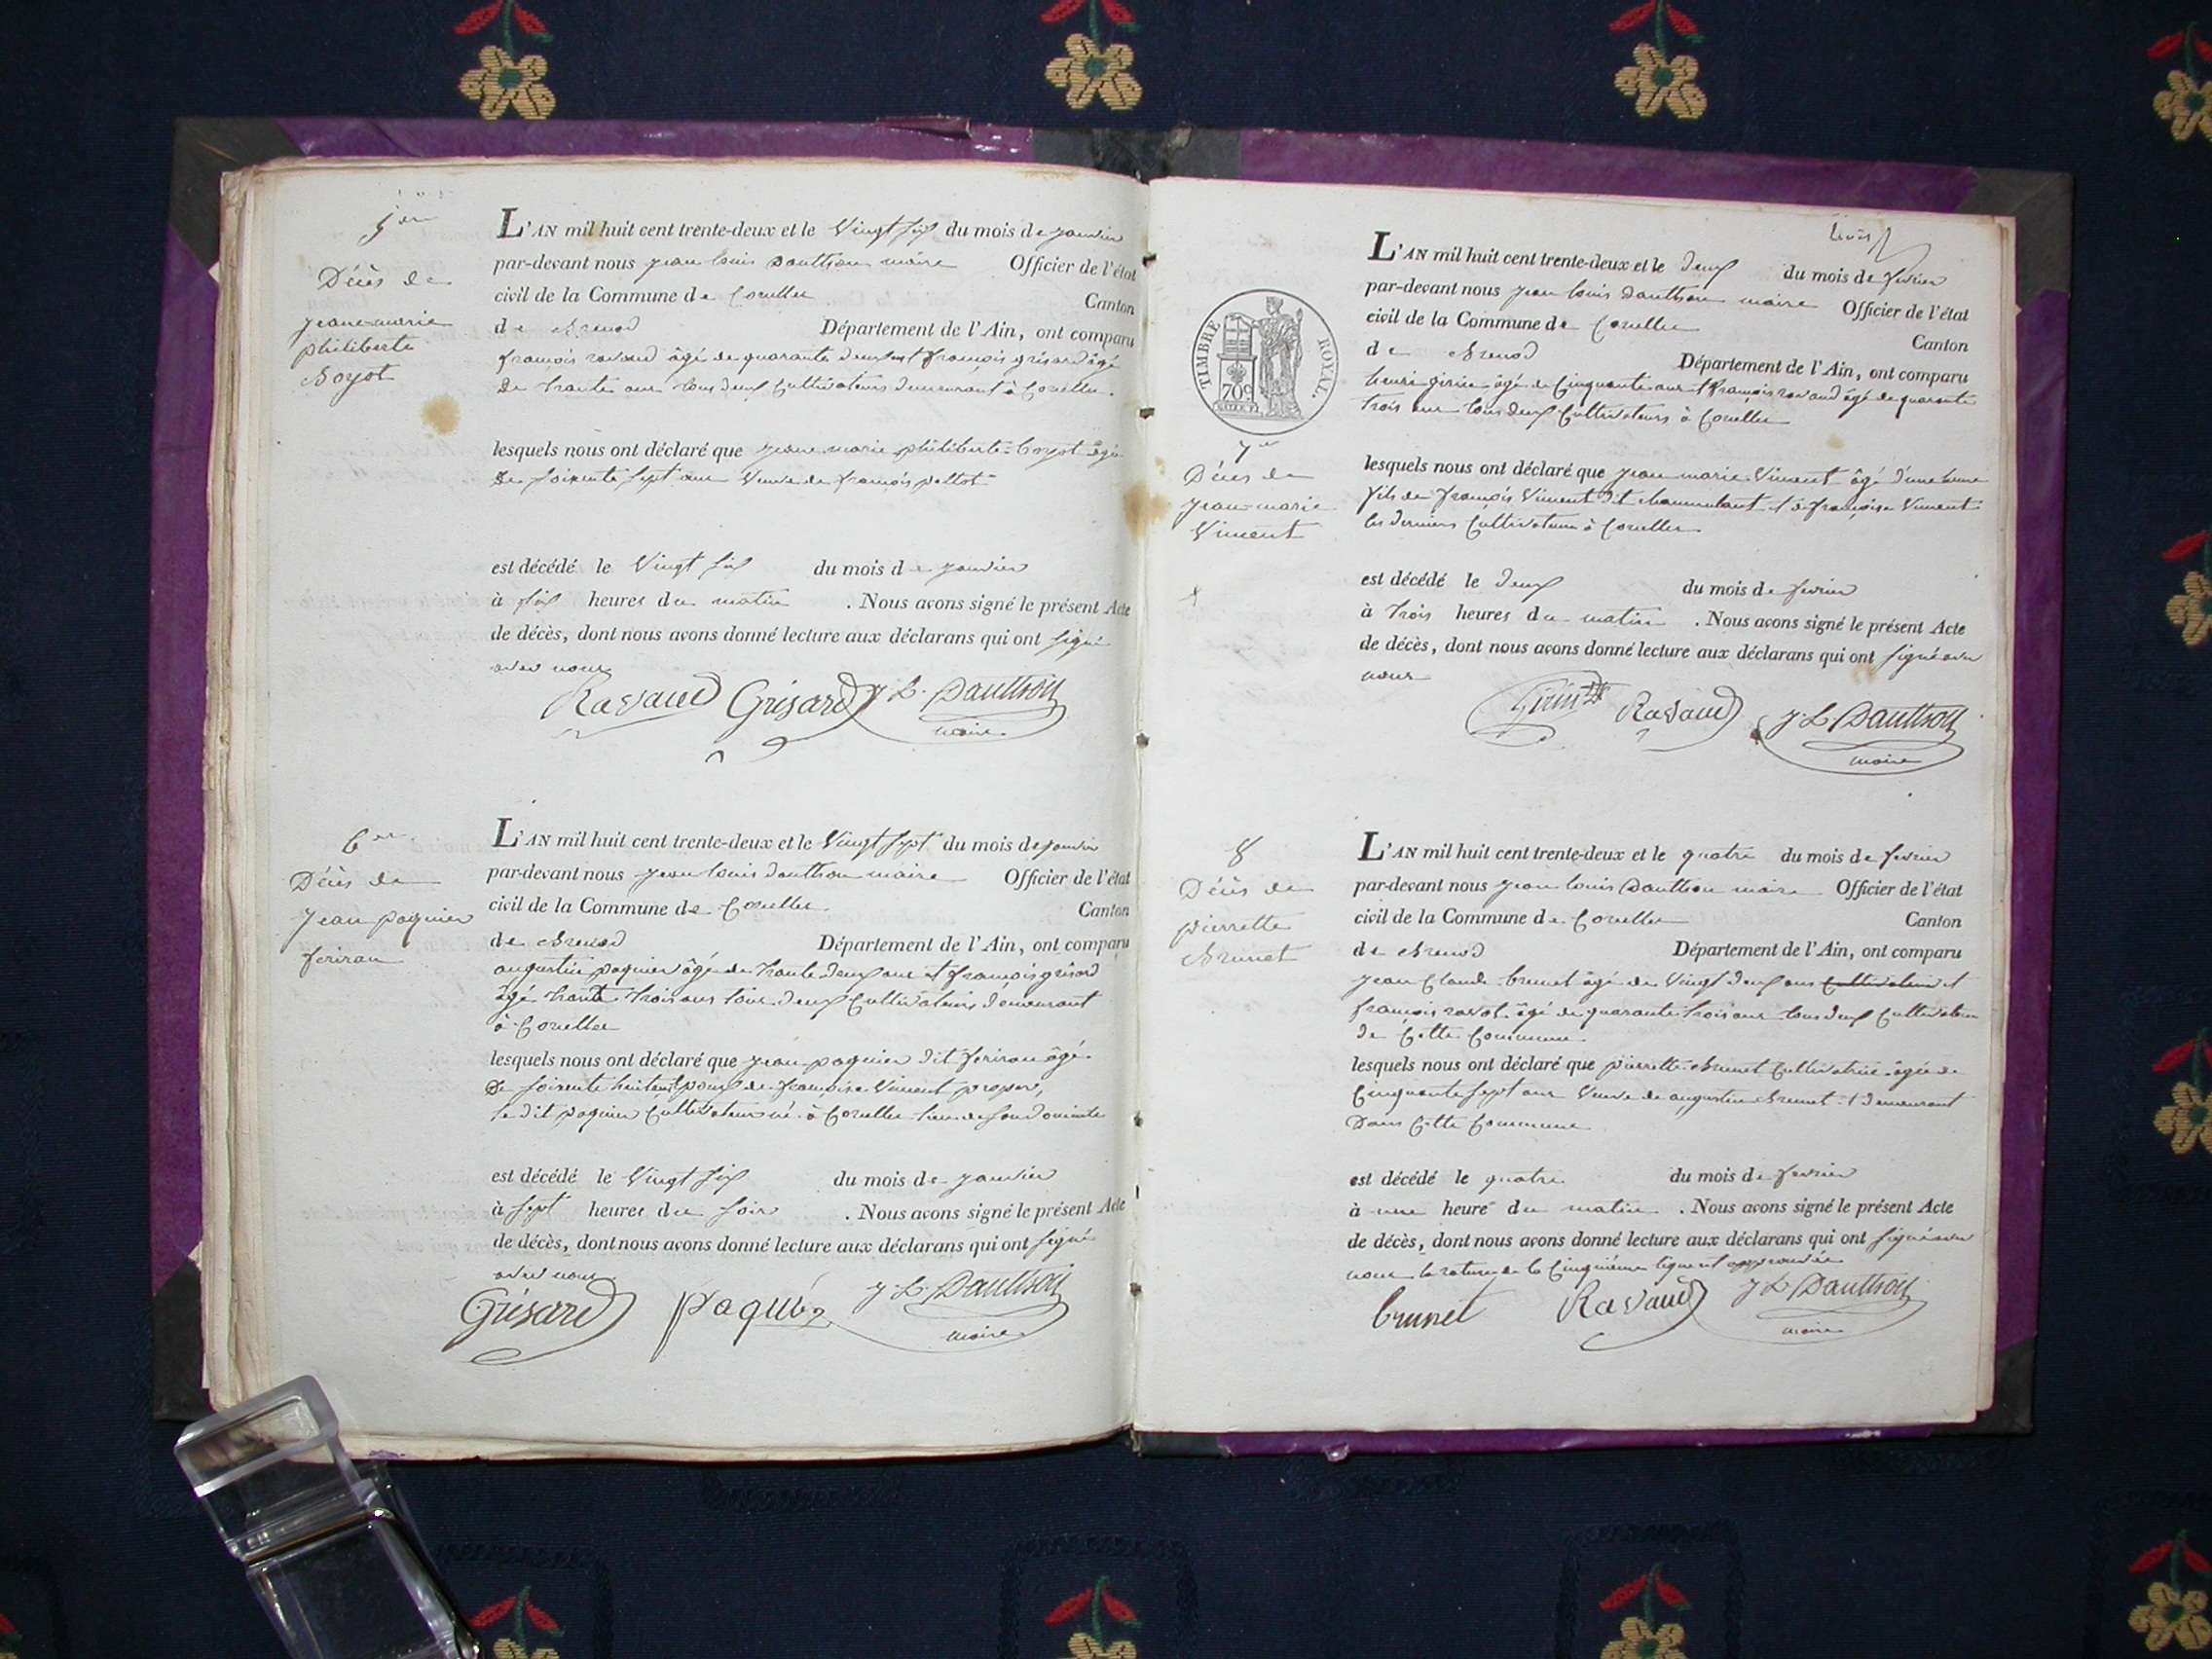 5me
Décès de
jeane-marie
philiberte
Boyot
L'AN mil huit cent trente-deux et le Vingt six du mois de janvier
par-devant nous jean louis Dauthon maire Officier de l'état
civil de la Commune de Corcelles Canton
de Brenod Département de l'Ain, ont comparu
françois ravaud âgé de quarante deux et françois grisard âgé
de trante ans tous deux Cultivateurs demeurant à Corcelles.
lesquels nous ont déclaré que jeane marie philiberte Boyot âgée
de soixante sept ans Veuve de françois pallot
est décédé le Vingt six du mois de janvier
à six heures du matin . Nous avons signé le présent Acte
de décès, dont nous avons donné lecture aux déclarans qui ont signé
avec nous
Ravaud Grisard J. L. Dauthon
maire
6me
Décès de
jean paquier
feriran
L'AN mil huit cent trente-deux et le Vingt sept du mois de janvier
par-devant nous jean louis dauthon maire Officier de l'état
civil de la Commune de Corcelles Canton
de Brenod Département de l'Ain, ont comparu
augustin paquier âgé de trante deux ans et françois grisard
âgé trante trois ans tous deux Cultivateurs demeurant
à Corcelles
lesquels nous ont déclaré que jean paquier dit feriran âgé
de soixante huit ans époux de françoise Vincent
le dit paquier Cultivateur né à Corcelles lieu de son domicile
est décédé le Vingt six du mois de janvier
à sept heures du soir . Nous avons signé le présent Acte
de décès, dont nous avons donné lecture aux déclarans qui ont signé
avec nous
Grisard Paquier J. L. Dauthon
maire
TIMBRE ROYAL.
709
7me
Décès de
jean-marie
Vincent
L'AN mil huit cent trente-deux et le deux du mois de fevrier
par-devant nous jean louis dauthon maire Officier de l'état
civil de la Commune de Corcelles Canton
de Brenod Département de l'Ain, ont comparu
henri girin âgé de Cinquante ans et françois ravaud âgé de quarante
trois ans tous deux Cultivateurs à Corcelles
lesquels nous ont déclaré que jean marie Vincent âgé d'une heure
fils de françois Vincent dit et de françoise Vincent
les derniers Cultivateurs à Corcelles
est décédé le deux du mois de fevrier
à trois heures du matin . Nous avons signé le présent Acte
de décès, dont nous avons donné lecture aux déclarans qui ont signé avec
nous
Girin Ravaud J. L. Dauthon
maire
8
Décès de
pierrette
Brunet
L'AN mil huit cent trente-deux et le quatre du mois de fevrier
par-devant nous jean louis Dauthon maire Officier de l'état
civil de la Commune de Corcelles Canton
de Brenod Département de l'Ain, ont comparu
jean Claude brunet âgé de Vingt deux ans Cultivateur et
françois ravot âgé de quarante trois ans tous deux Cultivateurs
de Cette Commune
lesquels nous ont déclaré que pierrette Brunet Cultivatrice âgée de
Cinquante sept ans Veuve de augustin Brunet et demeurant
Dans Cette Commune
est décédé le quatre du mois de fevrier
à une heure du matin . Nous avons signé le présent Acte
de décès, dont nous avons donné lecture aux déclarans qui ont signé avec
nous la rature de la Cinquième ligne et approuvée
brunet Ravaud J. L. Dauthon
maire